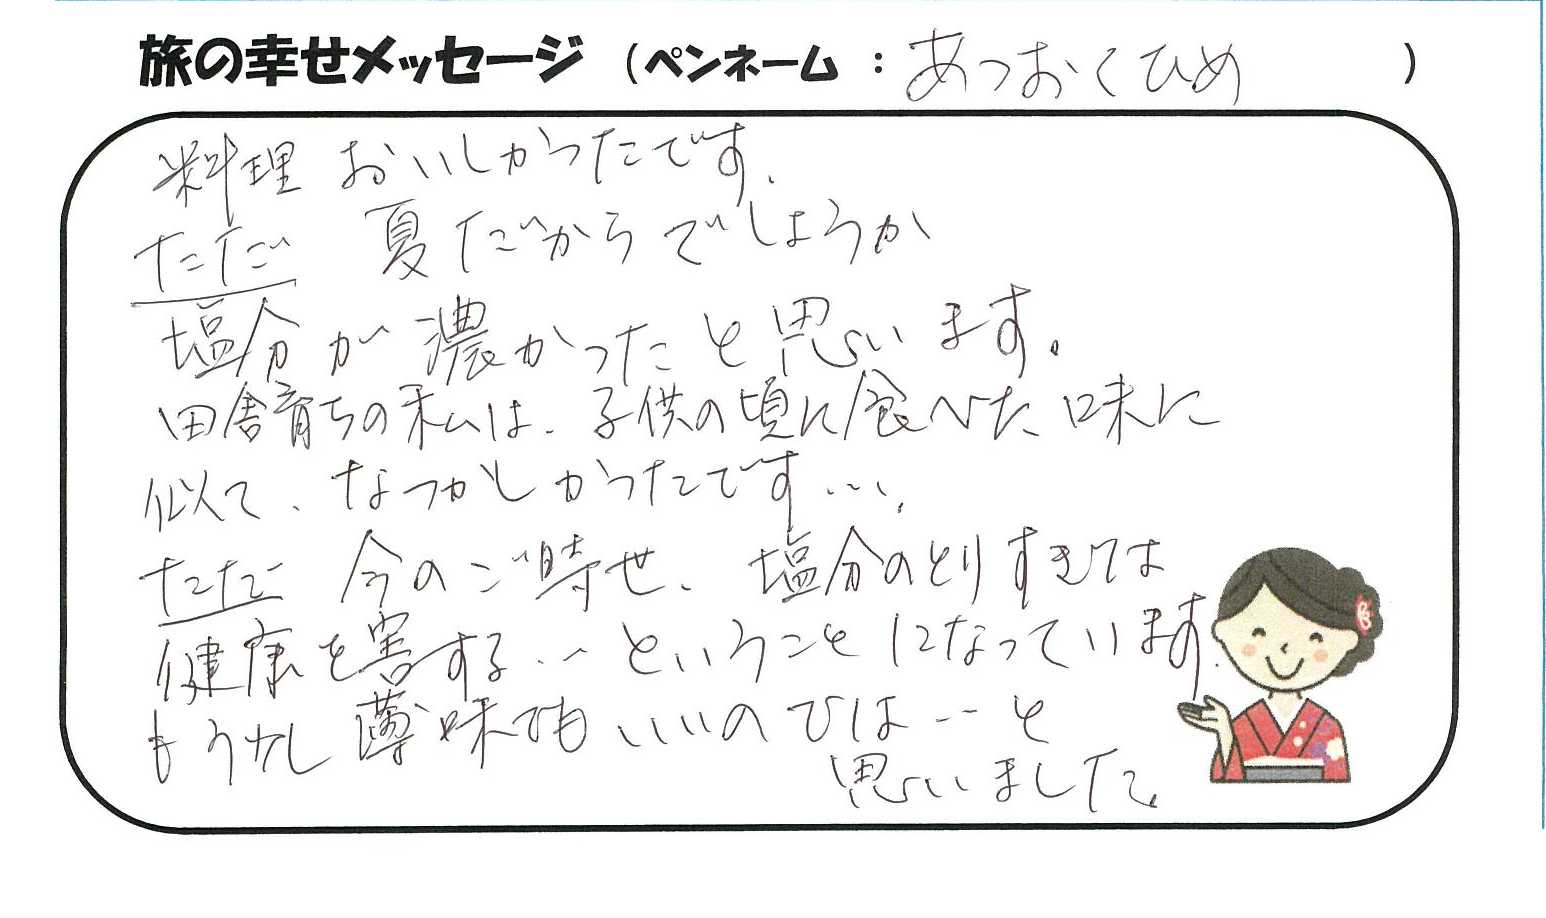 旅の幸せメッセージ (ペンネーム : あつおくひめ )
料理 おいしかったです.
ただ 夏だからでしょうか
塩分が濃かったと思います。
田舎育ちの私は、子供の頃に食べた味に
似て、なつかしかったです….
ただ 今のご時世、塩分のとりすぎては
健康を害する…ということになっています.
もう少し薄味でもいいのでは…と
思いました。